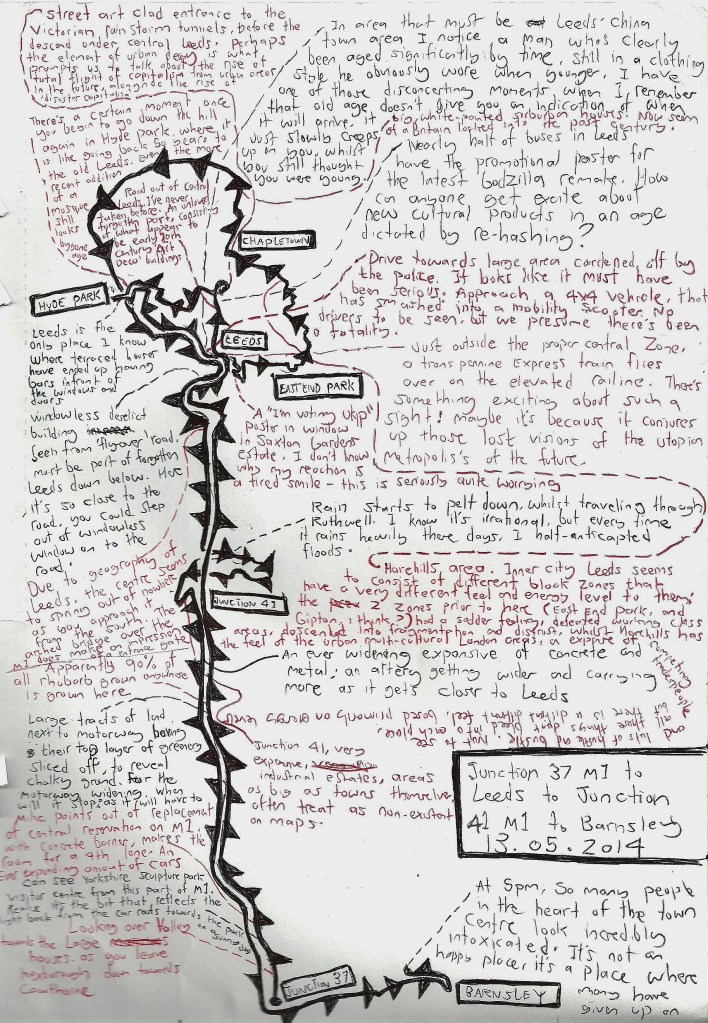 street art clad entrance to the
Victorian rain storm tunnels, before the
descend under central Leeds. Perhaps
the element of urban decay is what
prompts us to talk about the rise of
total flight of capitalism from urban areas
in the future, alongside the rise of
'disaster capitalism'
In area that must be Leeds' China
town area I notice a man who's clearly
been aged significantly by time, still in a clothing
style he obviously wore when younger. I have
one of those disconcerting moments when I remember
that old age doesn't give you an indication of when
it will arrive, it
just slowly creeps
up on you, whilst
you still thought
you were young.
big, white-painted suburban houses. Now seem
of a Britain locked into the past century.
There's a certain moment, once
you begin to go down the hill
again in Hyde park, where it
is like going back 50 years to
the old Leeds. even the more
recent addition
of a
mosque
still
looks
bygone
age
Road out of central
Leeds I've never
taken before. An unloved
forgotten part, consisting
of what appear to
be early 20th
century Art
Deco buildings
Nearly half of buses in Leeds
have the promotional poster for
the latest Godzilla remake. How
can anyone get excite about
new cultural products in an age
dictated by re-hashing?
CHAPLETOWN
HYDE PARK
LEEDS
EAST END PARK
Drive towards large area cordened off by
the police. It looks like it must have
been serious. Approach a 4x4 vehicle, that
has smashed into a mobility scooter. No
drivers to be seen, but we presume there's been
a fatality.
Just outside the proper central Zone,
a transpennine Express train flies
over on the elevated railine. There's
something exciting about such a
sight! maybe it's because it conjures
up those lost visions of the utopian
metropolis's of the future.
Leeds is the
only place I know
where terraced houses
have ended up having
bars infront of
the windows and
doors
windowless derelict
building
seen from 'flyover' road.
must be part of forgotten
Leeds down below. Here
it's so close to the
road, you could step
out of windowless
window on to the
road.
A "I'm voting UKIP"
poster in window
in Saxton Gardens
estate. I don't know
why my reaction is
a tired smile - this is seriously quite worrying
Rain starts to pelt down, whilst traveling through
Rothwell. I know it's irrational, but every time
it rains heavily these days, I half-anticapted
floods.
JUNCTION 41
Harehills area. Inner city Leeds seems
to consist of different block zones that
have a very different feel and energy level to them.
the 2 zones prior to here (East End park, and
Gipton, I think?) had a sadder feeling, defeated working class
areas, descended into fragmentation and distrust, whilst Harehills has
the feel of the urban multi-cultural London areas, an exposure of
competing
tradespeople
and lots of hustle and bustle. Not to see
all these things don't breed into each other,
but there is a different feel, based primarily on energy levels
Due to geography of
Leeds, the centre seems
to spring out of nowhere
as you approach it
from the south. The
arched bridge over the
M1 does make an impressive
entrance gate
Apparently 90% of
all rhubarb grown anywhere
is grown here.
An ever widening expansive of concrete and
metal, an artery getting wider and carrying
more as it gets closer to Leeds
Large tracts of land
next to motorway having
their top layer of greenery
sliced off, to reveal
chalky ground. For the
motorway widening. When
will it stop, as it will have to
Mike points out of replacement
of central reservation on M1
with concrete barrier, makes the
room for a 4th lane. An
Ever expanding amount of cars
Can see Yorkshire sculpture park
visitor centre from this part of M1.
Really it's the bit that reflects the
light back from the car roofs towards the park
on a sunny day
Looking over Valley
towards the Large
houses. as you leave
hexborough down towards
Cawthorne
Junction 41, very
expansive,
industrial estates, areas
as big as towns themselves
often treat as non-existant
on maps.
Junction 37 M1 to
Leeds to Junction
41 M1 to Barnsley
13.05.2014
At 5pm, so many people
in the heart of the town
Centre look incredibly
intoxicated. It's not an
happy place, it's a place where
many have
given up on
JUNCTION 37
BARNSLEY